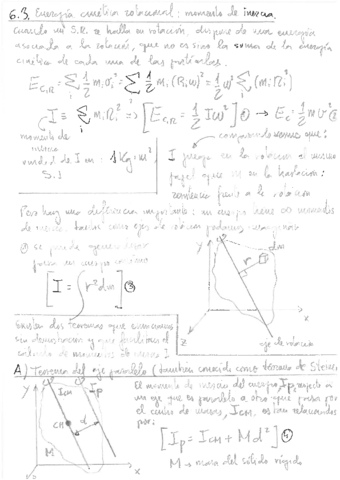 6.3. Energía cinética rotacional: momento de inercia
Cuando un S.R. se halla en rotación, dispone de una energía
asociada a la rotación, que no es sino la suma de la energía
cinética de cada una de las partículas.
E_{C,R} = Σ ½ m_i v_i² = Σ ½ m_i (R_i ω)² = ½ ω² Σ (m_i R_i²)
I ≡ Σ m_i R_i² ⇒ [E_{C,R} = ½ I ω²] ① → E_C = ½ m v²
momento de inercia
unidad de I en S.I. : 1 Kg·m²
comparando vemos que:
I juega en la rotación el mismo
papel que m en la traslación:
frente a la rotación
Pero hay una diferencia importante: un cuerpo tiene ∞ momentos
de inercia, tantos como ejes de rotación podamos imaginar
① se puede generalizar
para un cuerpo continuo
[I = ∫ r² dm] ③
dm
r
X
Z
eje de rotación
Existen dos teoremas que enunciamos
sin demostración y que facilitan el
cálculo de momentos de inercia I
A) Teorema del eje paralelo (también conocido como teorema de Steiner)
El momento de inercia del cuerpo, I_P, respecto a
un eje que es paralelo a otro que pasa por
el centro de masas, I_CM, están relacionados
por:
[I_P = I_CM + M d²] ④
M → masa del sólido rígido
Y
I_CM
I_P
CM
d
M
X